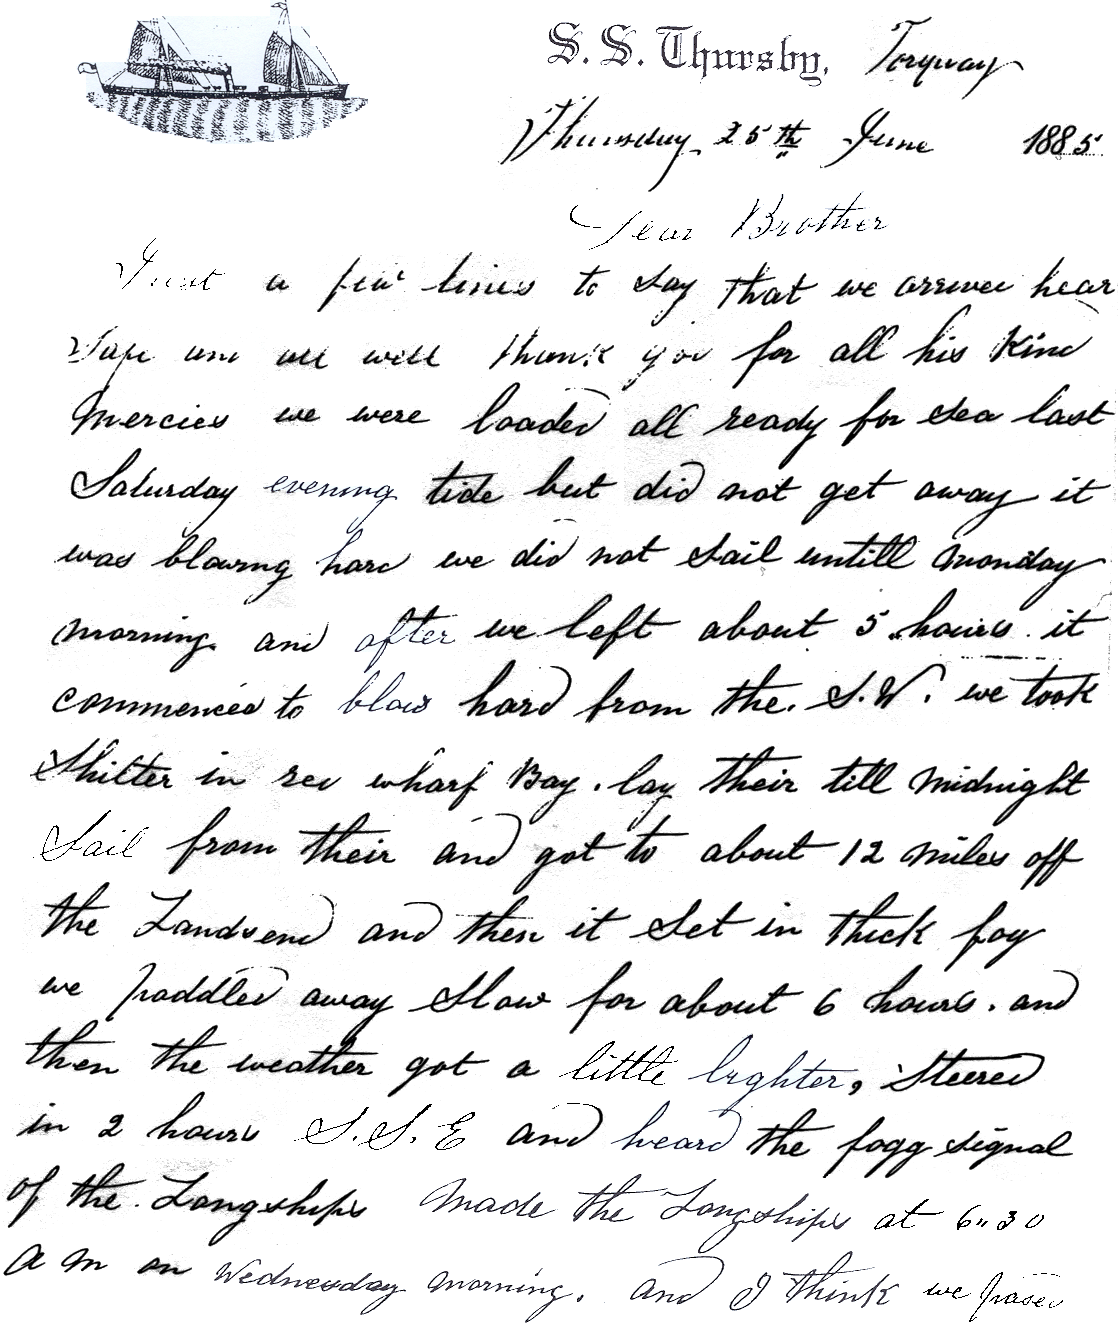 S. S. Thursby, Torquay
Thursday 25th June 1885
Dear Brother
Just a few lines to say that we arrived hear
Safe and all well thank god for all his Kind
Mercies we were loaded all ready for sea last
Saturday evening tide but did not get away it
was blowing hard we did not sail untill monday
morning. and after we left about 5 hours it
commenced to blow hard from the. S.W. we took
Shilter in red wharf Bay. lay their till Midnight
Sail from their and got to about 12 Miles off
the Landsend and then it set in thick fog
we paddled away slow for about 6 hours. and
then the weather got a little lighter, steered
in 2 hours S.S.E and heard the fogg signal
of the. Longships Made the Longships at 6"30
a m on Wednesday morning. and I think we passed